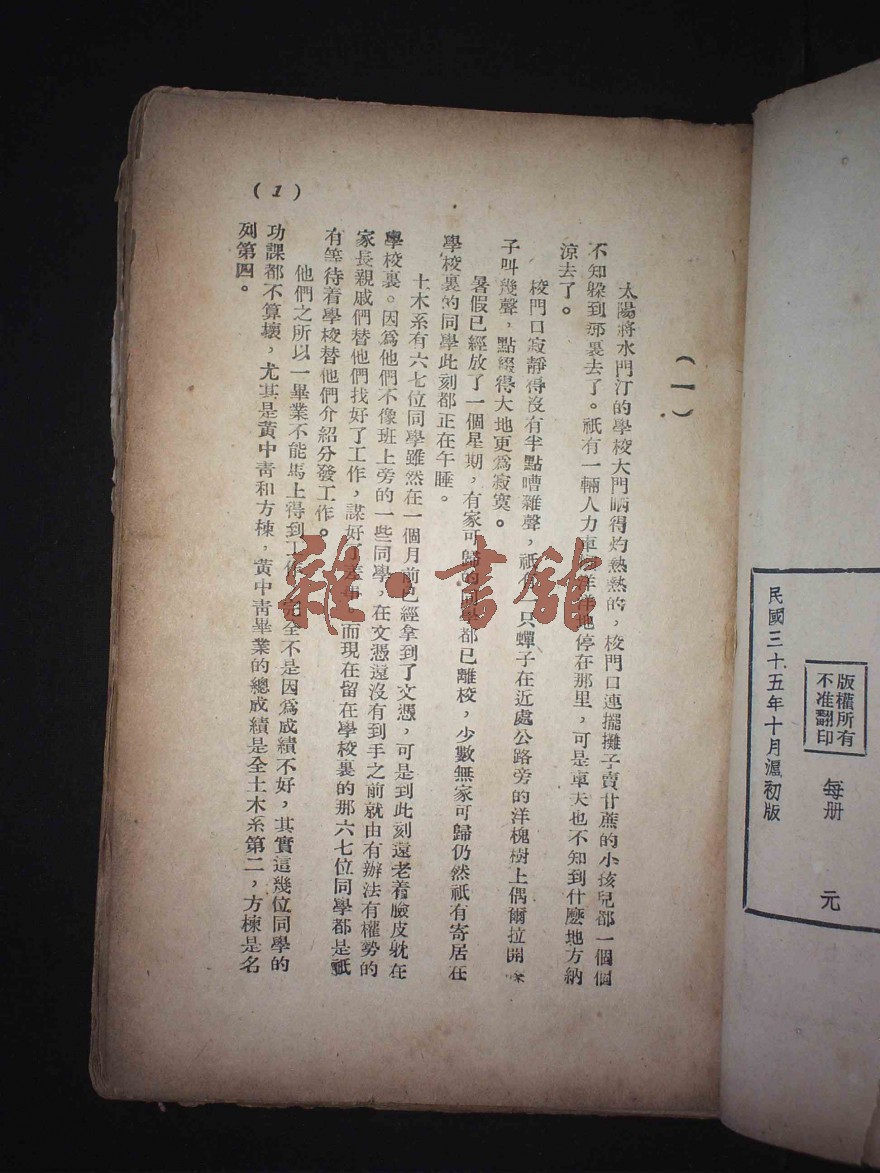 民國三十五年十月滬初版
版權所有
不准翻印
每册 元
(一)
太陽將水門汀的學校大門晒得灼熱熱的，校門口連擺攤子賣甘蔗的小孩兒都一個個
不知躲到那裏去了。祇有一輛人力車 洋洋地停在那里，可是車夫也不知到什麽地方納
涼去了。
校門口寂靜得沒有半點嘈雜聲，祇有一只蟬子在近處公路旁的洋槐樹上偶爾拉開
子叫幾聲，點綴得大地更爲寂寞。
暑假已經放了一個星期，有家可歸的同學都已離校，少數無家可歸仍然祇有寄居在
學校裏的同學此刻都正在午睡。
土木系有六七位同學雖然在一個月前已經拿到了文憑，可是到此刻還老着臉皮躭在
學校裏。因爲他們不像班上旁的一些同學，在文憑還沒有到手之前就由有辦法有權勢的
家長親戚們替他們找好了工作，謀好了 而現在留在學校裏的那六七位同學都是祇
有等待着學校替他們介紹分發工作。
他們之所以一畢業不能馬上得到工作，完全不是因爲成績不好，其實這幾位同學的
功課都不算壞，尤其是黃中靑和方棟，黃中靑畢業的總成績是全土木系第二，方棟是名
列第四。
(1)
雜·書館